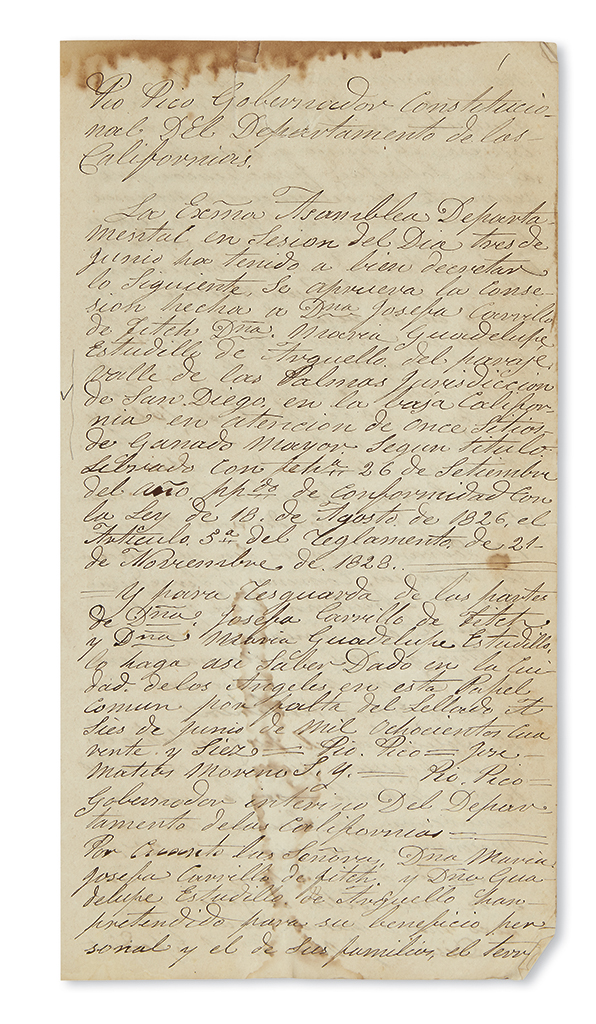 Pio Pico Gobernador Constitucio-
nal DEl Departamento de las
Californias.
La Exma Asamblea Departa-
mental en Sesion del Dia tres de
Junio ha tenido a bien decretar
lo Siguiente. Se aprueva la conse-
sion hecha a Dña Josefa Carrillo
de Fitch Dña. Maria Guadelupe
Estudillo de Arguello. del paraje
valle de las Palmas Jurisdiccion
de San. Diego, en la baja Califor-
nia en Atencion de once Sitios
de Ganado Mayor Segun titulo
Librado con fecha 26 de Setiembre
del año ppdo de conformidad Con
la Ley de 18. de Agosto de 1826, el
Articulo 5º del Reglamento de 21-
de Noviembre de 1828.
= Y para Resguarda de las partes
de Dña. Josefa Carrillo de Fitch
y Dña Maria Guadelupe Estudillo,
lo haga asi Saber Dado en la Ciu
dad. de los Angeles en esta Papel
comun por falta del Sellado A
Sies de Junio de Mil Ochocientos cua
rente y Siez = Pio. Pico = Jose
Matias Moreno S. Y. = Pio. Pico =
Gobernador interino Del Depar
tamento de las Californias =
Por Cuanto las Señora, Dña Maria
Josefa Carrillo de Fitch. y Dña Gua
delupe Estudillo de Arguello han
pretendido para su beneficio per
sonal y el de sus familias, el terr